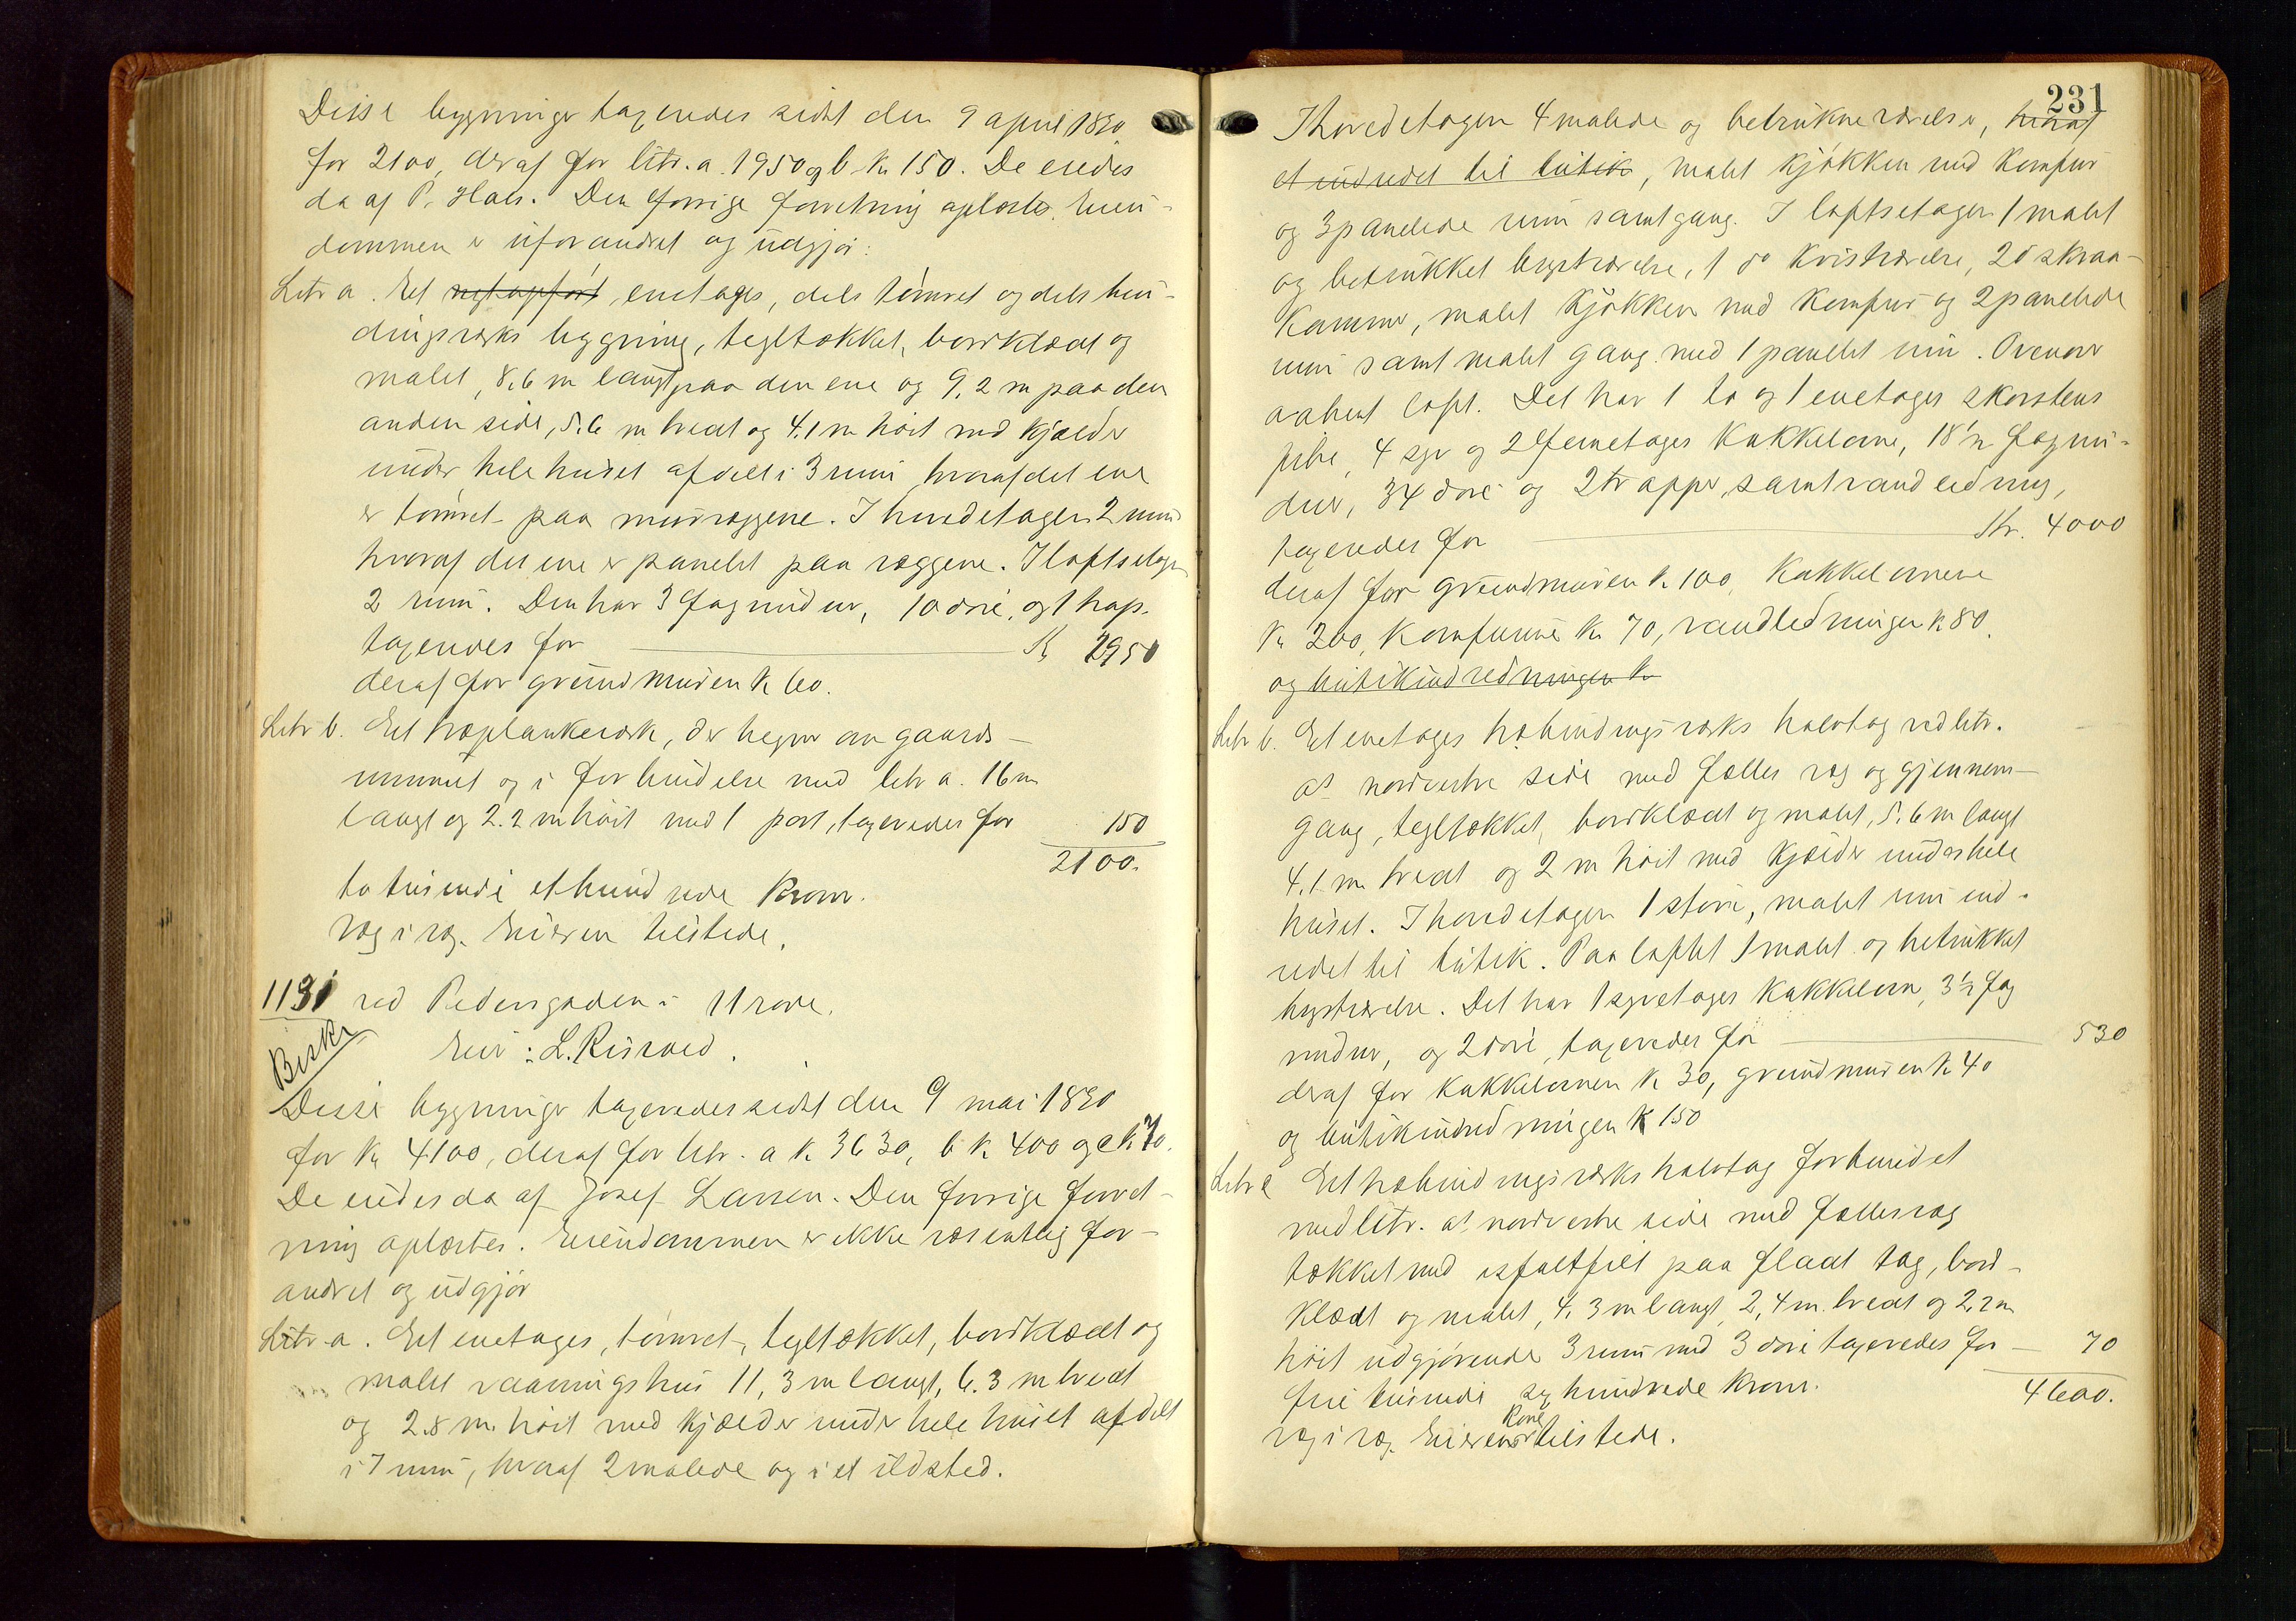 Disse bygninger taxeredes sidst den 9 april 1890
for 2100, deraf for litr. a. 1950 og b kr 150. De eiedes
da af P. Hals. Den forrige forretning oplæstes. Eien-
dommen er uforandret og udgjør:
Litr a. Et nyt opført, enetages, dels tømret og dels bin-
dingsværks bygning, tegltækket, bordklædt og
malet, 8,6 m langt paa den ene og 9,2 m paa den
anden side, 5.6 m bredt og 4.1 m høit med kjælder
under hele huset afdelt i 3 rum hvoraf det ene
er tømret paa murvæggene. I hovedetagen 2 rum
hvoraf det ene er panelet paa væggene. I loftsetagen
2 rum. Den har 3 fag vinduer, 10 døre, og 1 trap.
taxeredes for Kr 1950
deraf for grundmuren kr 60.
Litr b. Et træplankeværk, der hegner om gaards-
rummet og i forbindelse med litr a. 16 m
langt og 2.2 m høit med 1 port, taxeredes for 150
2100.
to tusinde et hundrede kroner.
Væg i væg. Eieren tilstede.
1131 ved Pedersgaden i 11 rode.
Beskr
Eier: L. Risvold.
Disse bygninger taxeredes sidst den 9 mai 1890
for kr 4100, deraf for litr. a kr 3630, b kr 400 og c kr 70.
De eiedes da af Josef Larsen. Den forrige forret-
ning oplæstes. Eiendommen er ikke væsentlig for-
andret og udgjør
Litr a. Et enetages, tømret, tegltækket, bordklædt og
malet vaaningshus 11,3 m langt, 6.3 m bredt
og 2.8 m høit med kjælder under hele huset afdelt
i 7 rum, hvoraf 2 malede og i et ildsted.
231
I hovedetagen 4 malede og betrukne værelser, hvoraf
et indredet til butik, malet kjøkken med komfur
og 3 panelede rum samt gang. I loftsetagen 1 malet
og betrukket kvistværelse, 1 do kvistværelse, 2 do skraa-
kammer, malet kjøkken med komfur og 2 panelede
rum samt malet gang med 1 panelet rum. Ovenover
aabent loft. Det har 1 to og 1 enetages skorstens
pibe, 4 syv og 2 femetages kakkelovne, 18 1/2 fag vin-
duer, 34 døre og 2 trapper, samt vandledning,
taxeredes for Kr. 4000
deraf for grundmuren kr 100, kakkelovnene
kr 200, komfurene kr 70, vandledningen kr 80.
og butikindredningen kr
Litr b. Et enetages træbindingsværks halvtag ved litr.
as nordvestre side med fælles væg og gjennem-
gang, tegltækket, bordklædt og malet, 5.6 m langt
4.1 m bredt og 2 m høit med kjælder under hele
huset. I hovedetagen 1 større, malet rum ind-
redet til butik. Paa loftet 1 malet og betrukket
kvistværelse. Det har 1 syvetages kakkelovn, 3 1/2 fag
vinduer, og 2 døre, taxeredes for 530
deraf for kakkelovnen kr 30, grundmuren kr 40
og butikindredningen kr 150
Litr c Et træbindingsværks halvtag forbundet
med litr. as nordvestre side med fællesvæg
tækket med asfaltfilt paa fladt tag, bord-
klædt og malet, 4.3 m langt, 2,4 m. bredt og 2,2 m
høit udgjørende 3 rum med 3 døre taxeredes for 70
fire tusinde sex hundrede kroner. 4600.
væg i væg. Eierens kone tilstede.